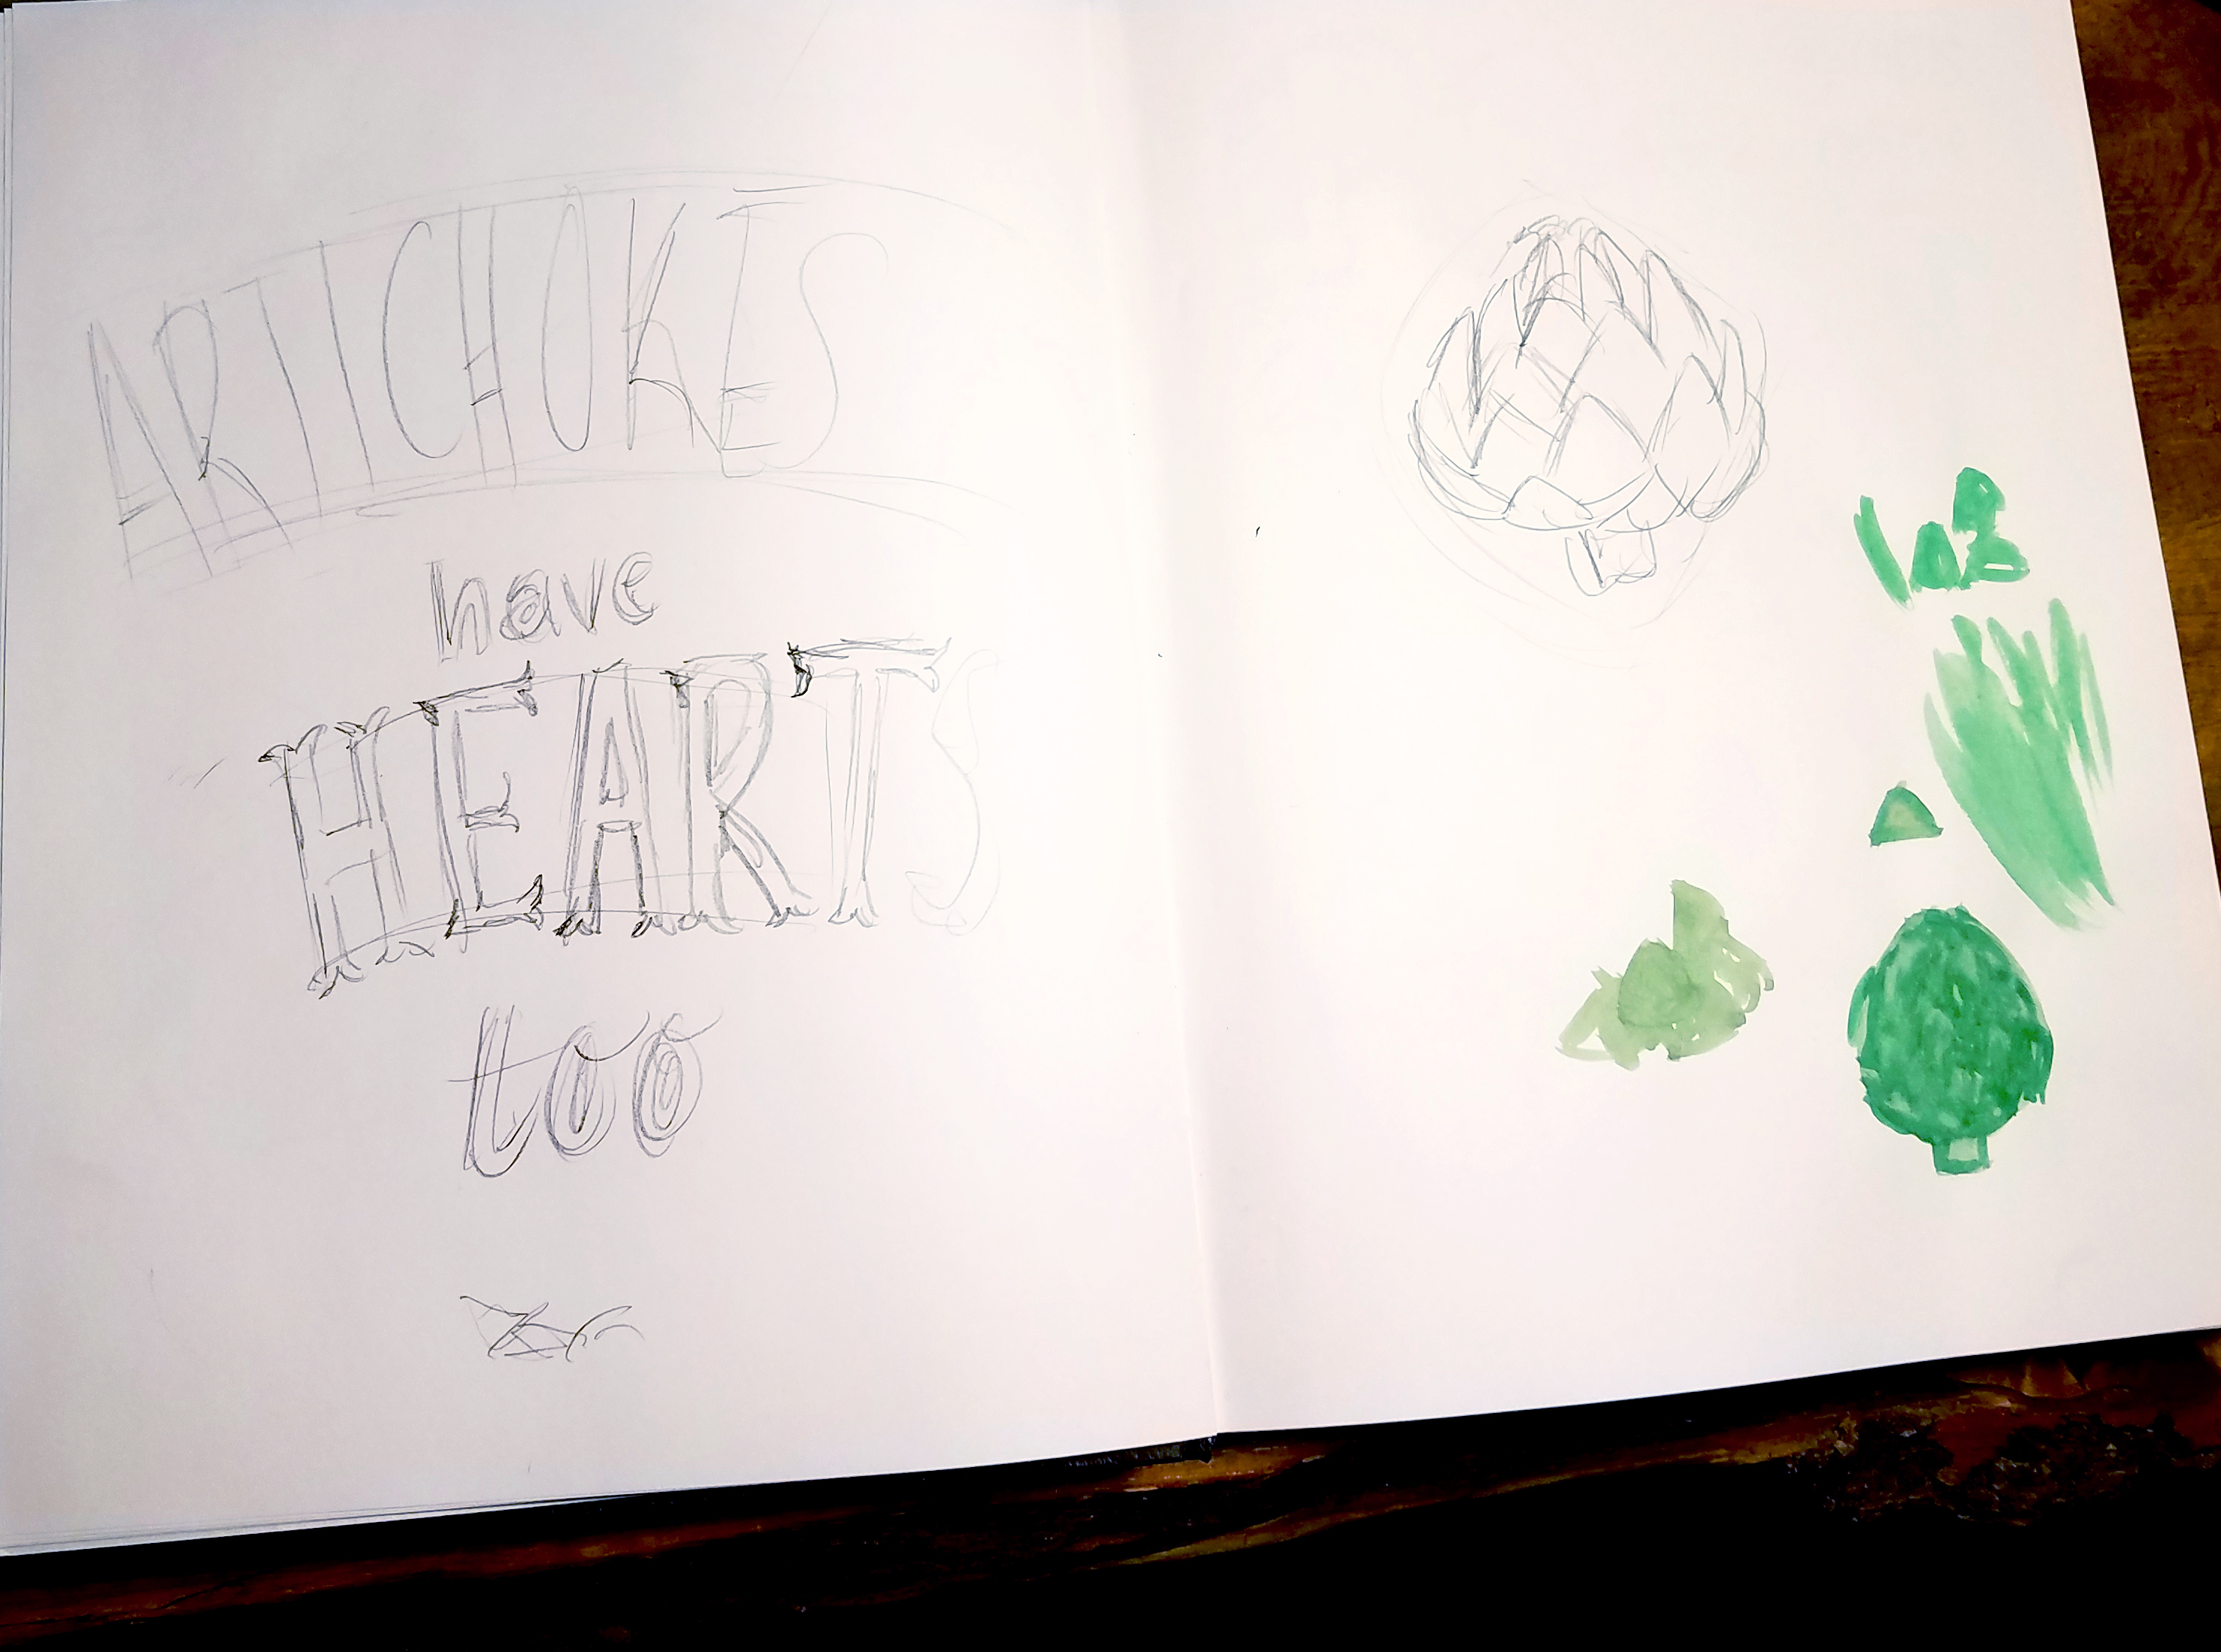 ARTICHOKES
have
HEARTS
too